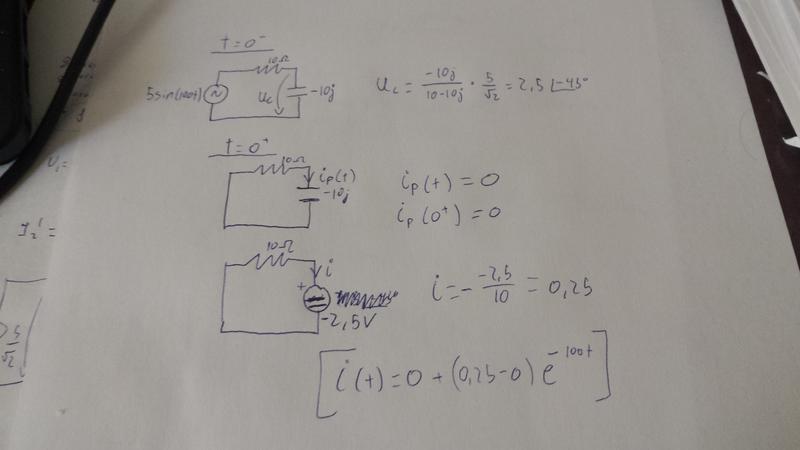 t=0⁻
10Ω
5sin(100t)
Uc
-10j
Uc = -10j/(10-10j) · 5/√2 = 2,5 ∠-45°
t=0⁺
10Ω
ip(t)
-10j
ip(t) = 0
ip(0⁺) = 0
10Ω
i
+
-2,5V
i = - -2,5/10 = 0,25
[i(t) = 0 + (0,25-0) e^-100t]
U₁=
I₂' =
5/√2